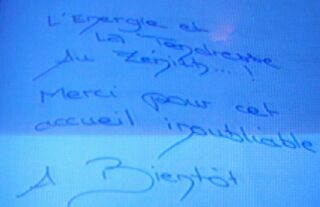 L'Energie et
La Tendresse
du Zénith...!
Merci pour cet
accueil inoubliable
A Bientôt